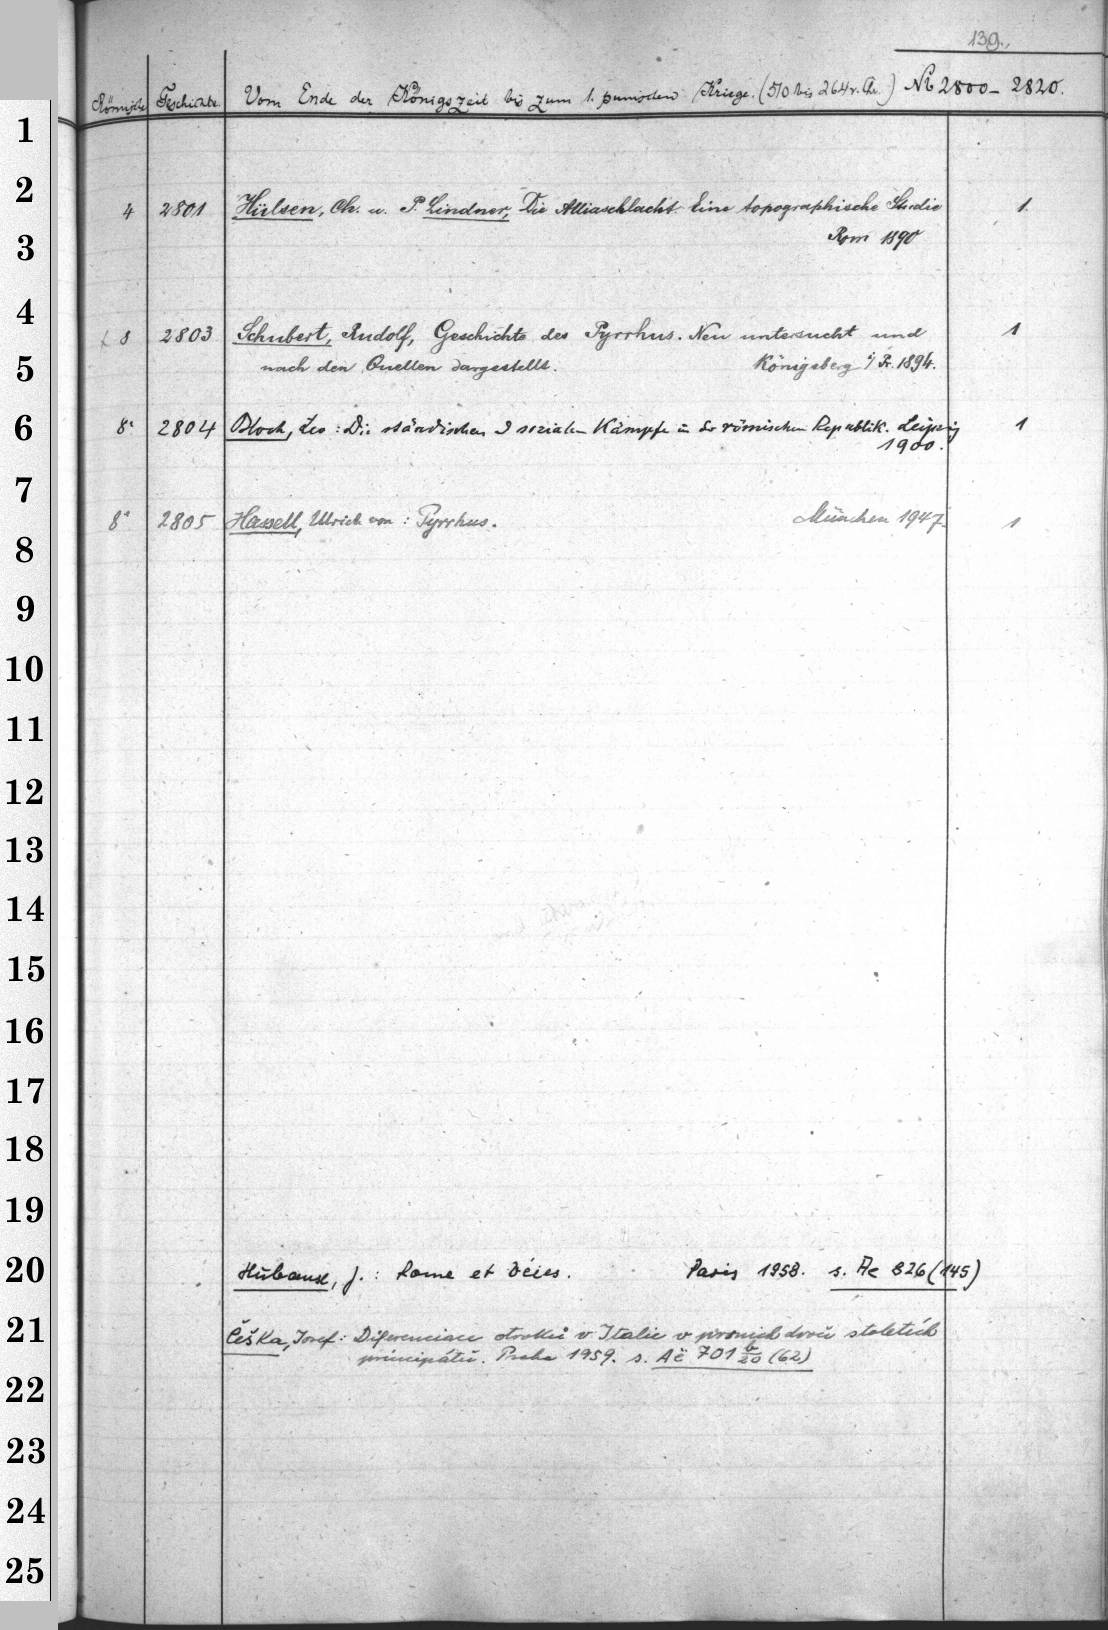 139.
Römische Geschichte. Vom Ende der Königszeit bis zum 1. punischen Kriege. (510 bis 264 v. Chr.) No 2800 – 2820.
1
2
4 2801 Hülsen, Ch. u. P. Lindner, Die Alliaschlacht. Eine topographische Studie 1.
Rom 1890
3
4
8 2803 Schubert, Rudolf, Geschichte des Pyrrhus. Neu untersucht und 1
nach den Quellen dargestellt. Königsberg i/Pr. 1894.
5
6
8° 2804 Bloch, Leo: Die ständischen u sozialen Kämpfe in der römischen Republik. Leipzig 1
1900.
7
8° 2805 Hassell, Ulrich von: Pyrrhus. München 1947. 1
8
9
10
11
12
13
14
15
16
17
18
19
20
Hubaux, J.: Rome et Véies. Paris 1958. s. Ac 826 (145)
21
Češka, Josef: Diferenciace otroků v Italii v prvních dvou stoletích
principátu. Praha 1959. s. Ač 701 b/20 (62)
22
23
24
25